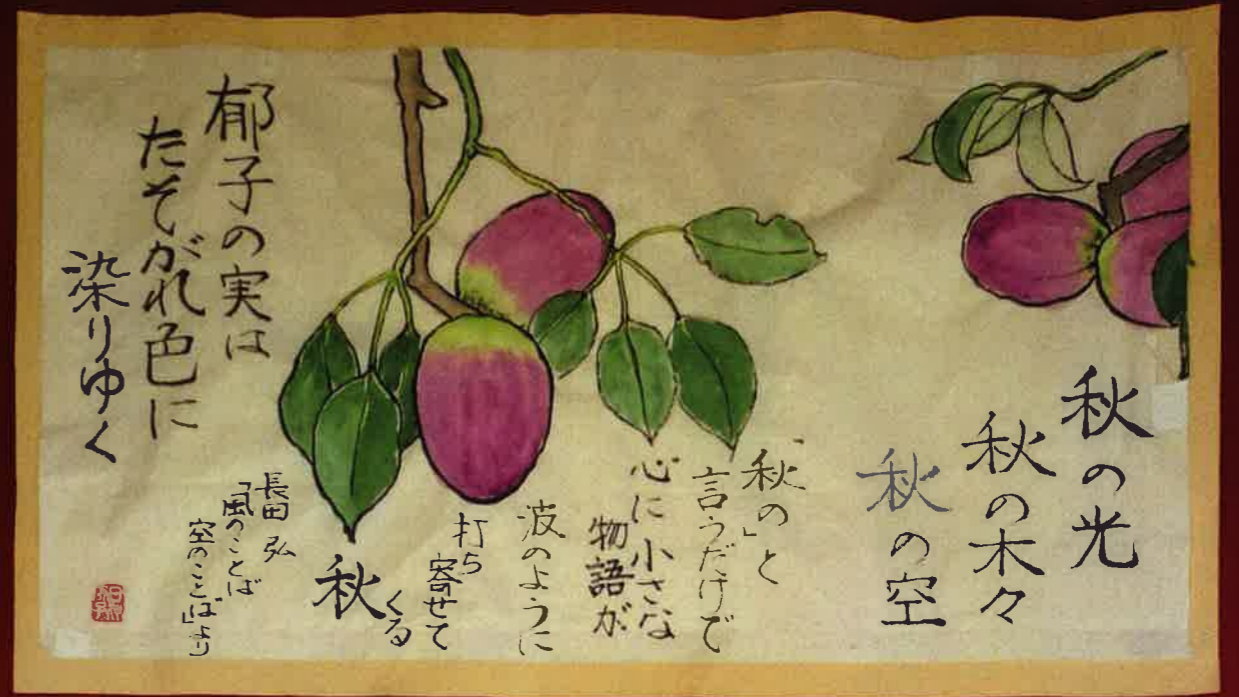 秋の光
秋の木々
秋の空
「秋の」と
言うだけで
心に小さな
物語が
波のように
打ち
寄せて
くる
秋
長田 弘
「風のことば
空のことば」より
郁子の実は
たそがれ色に
染りゆく